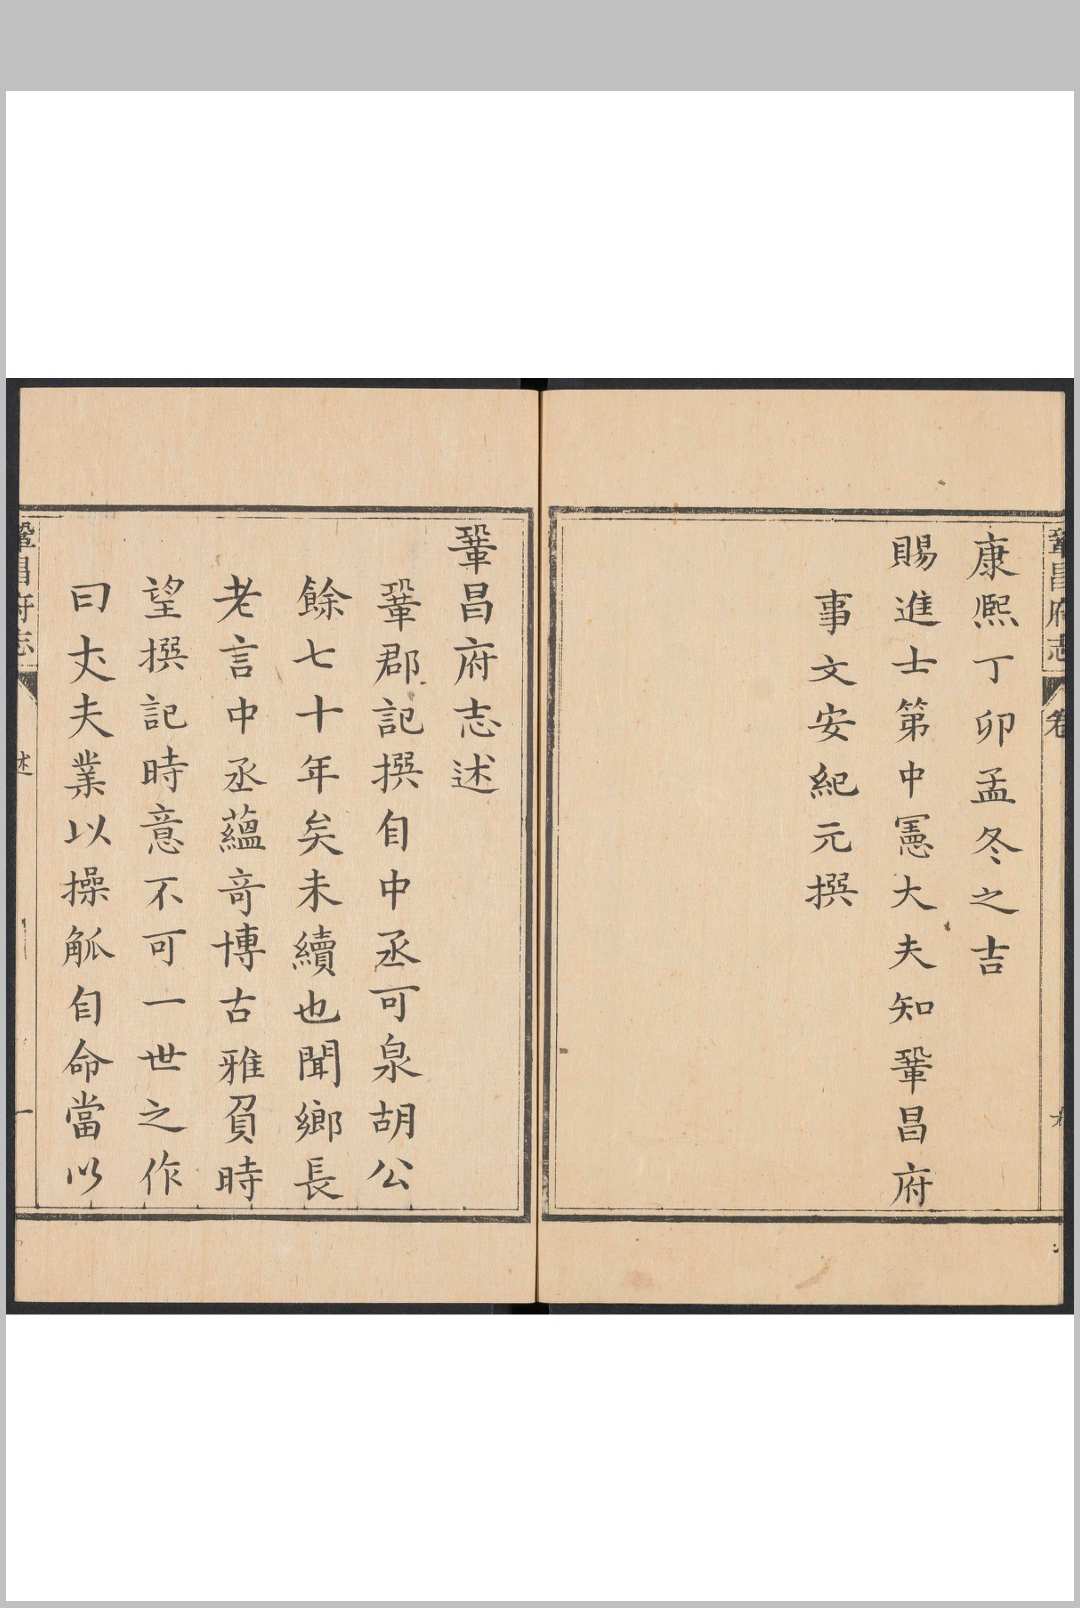 康熈丁卯孟冬之吉
賜進士第中憲大夫知鞏昌府
事文安紀元撰
鞏昌府志
卷
鞏昌府志述
鞏郡記撰自中丞可泉胡公
餘七十年矣未續也聞鄉長
老言中丞蘊竒博古雅負時
望撰記時意不可一世之作
曰丈夫業以操觚自命當以
鞏昌府志
述
一